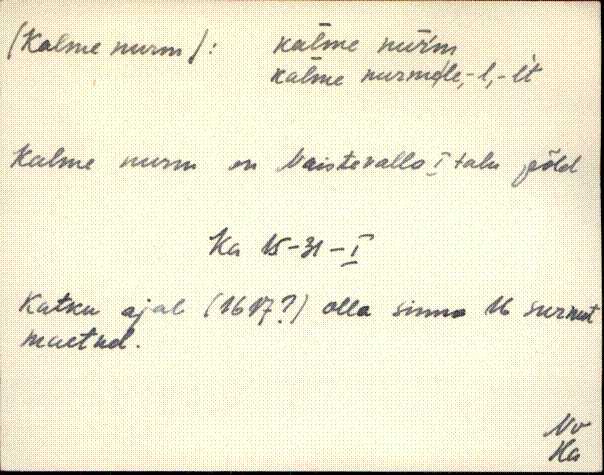 (Kalme nurm): kalme nurm
kalme nurmele, -l, -lt
Kalme nurm on Naistevalla I talu põld
Ka 15-31-I
Katku ajal (1617?) olla sinna 16 surnut
maetud.
Nv
Ha